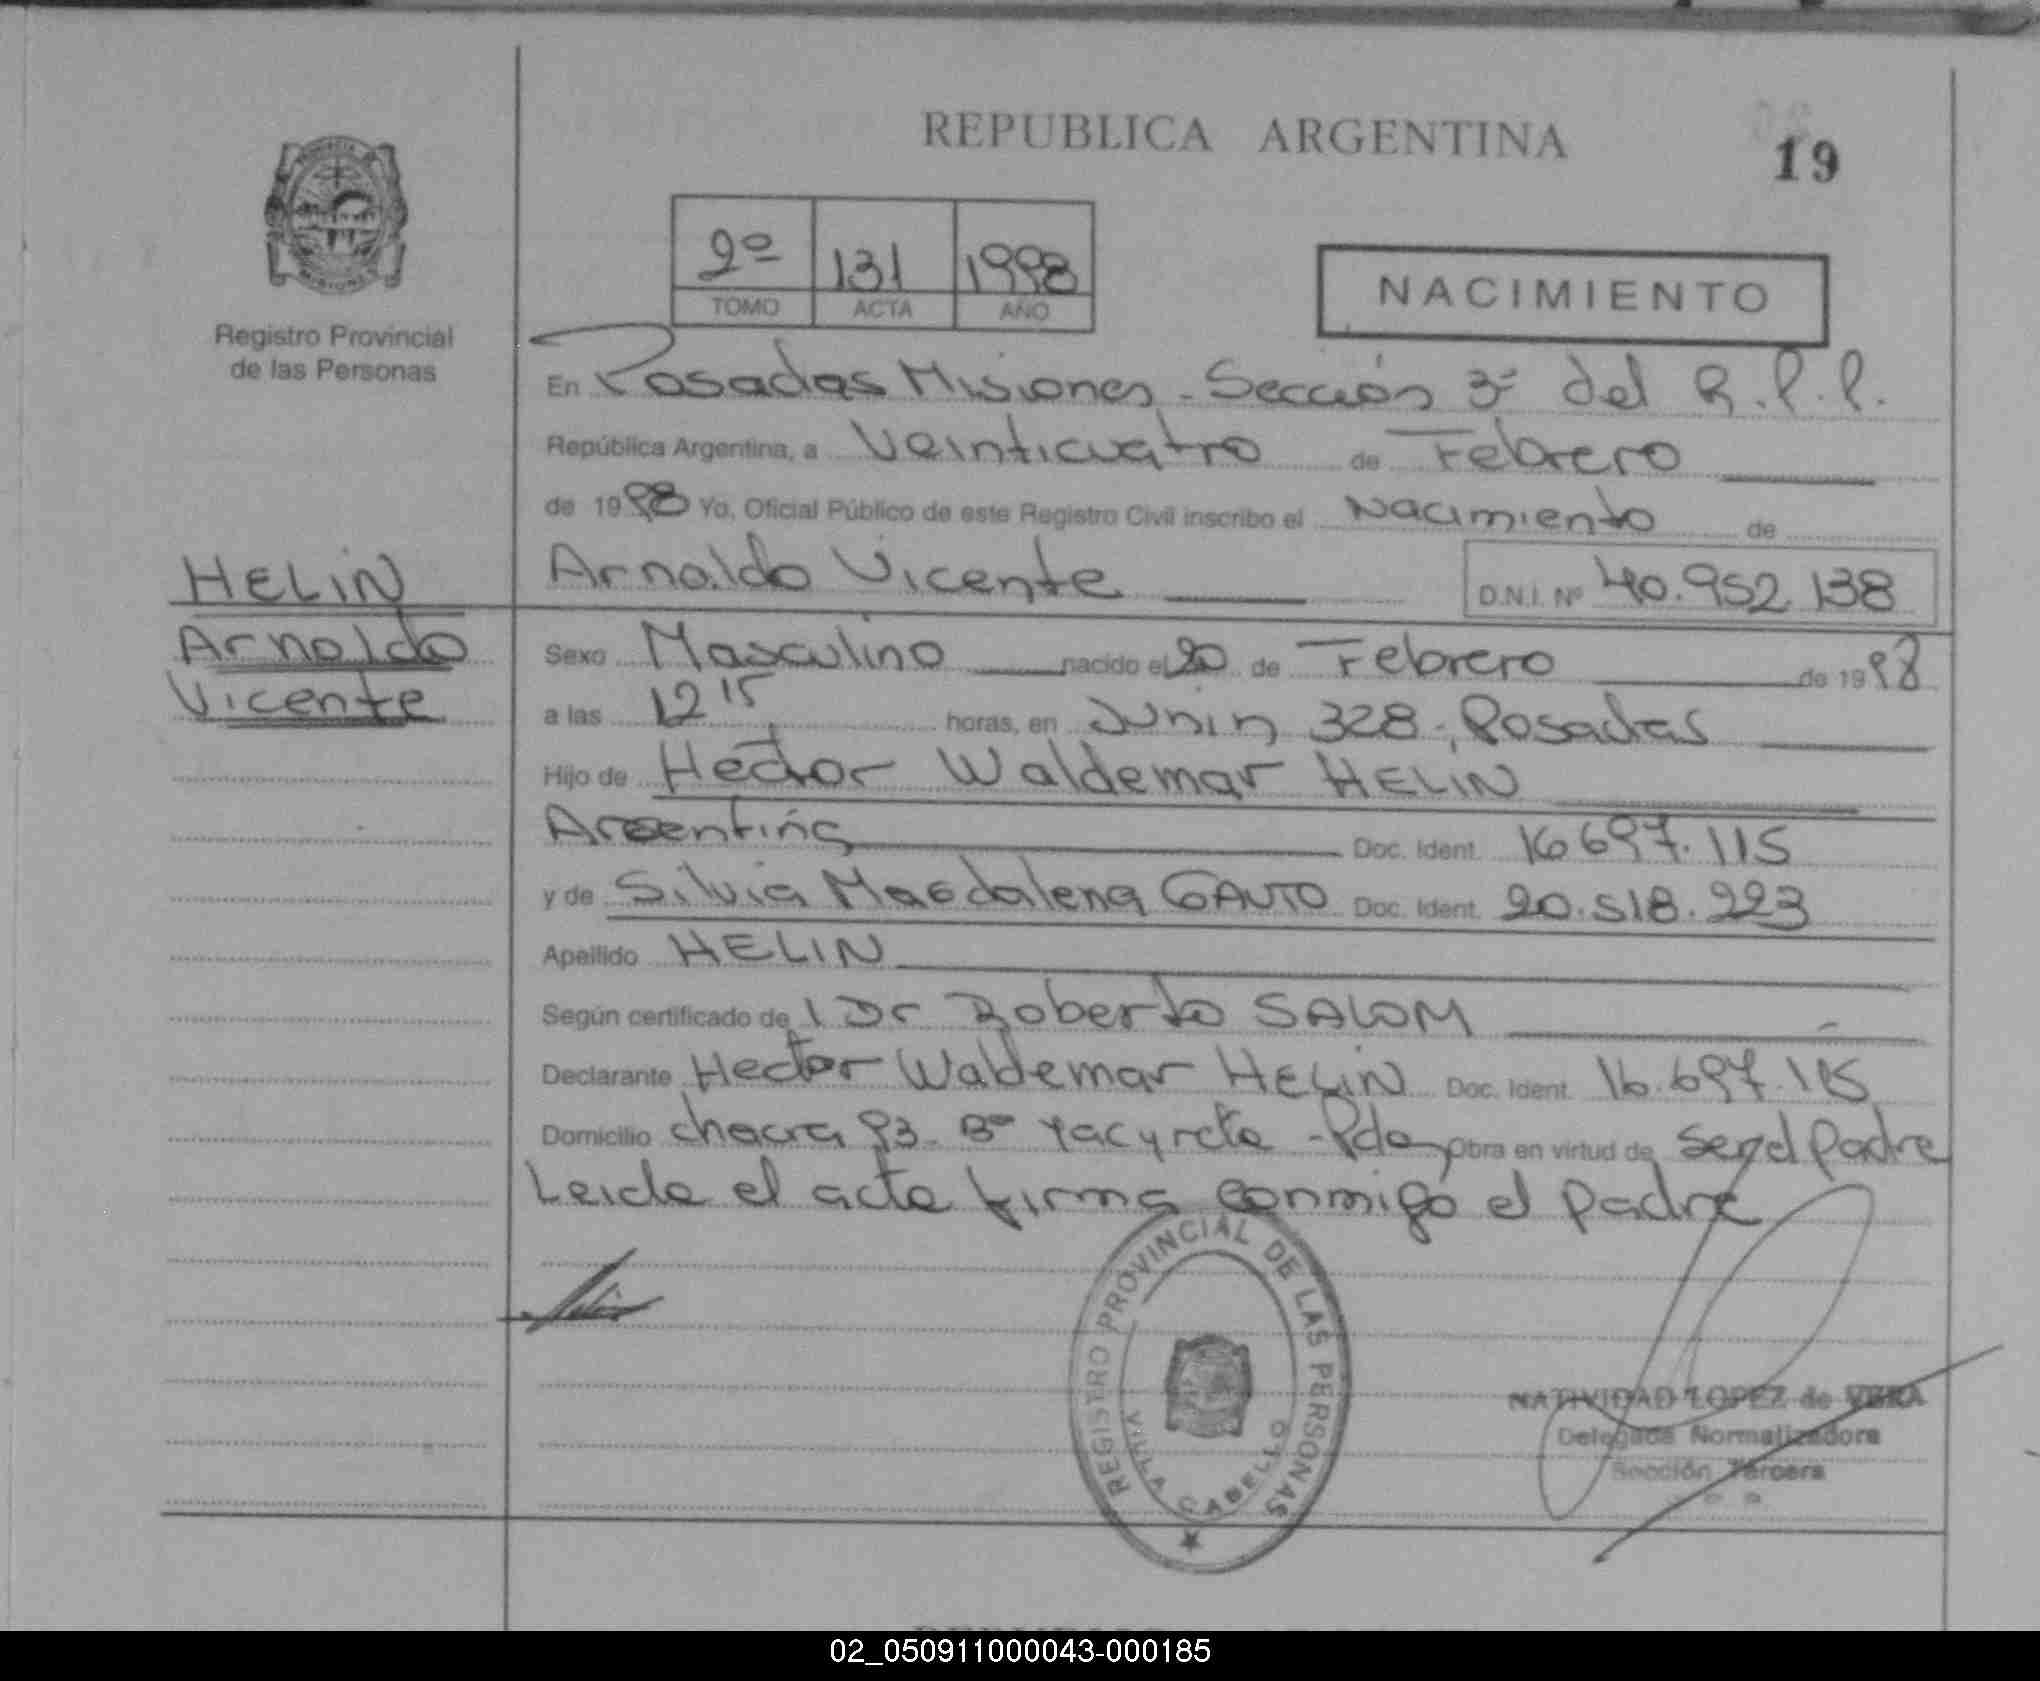 REPUBLICA ARGENTINA
19
2º 131 1998
TOMO ACTA AÑO
NACIMIENTO
Registro Provincial
de las Personas
En Posadas Misiones - Sección 3ª del R.P.P.
República Argentina, a Veinticuatro de Febrero
de 1998 Yo, Oficial Público de este Registro Civil inscribo el Nacimiento de
Arnoldo Vicente D.N.I. Nº 40.952.138
HELIN
Arnoldo
Vicente
Sexo Masculino nacido el 20 de Febrero de 1998
a las 12 15 horas, en Junin 328 - Posadas
Hijo de Hector Waldemar HELIN
Argentina Doc. Ident. 16.697.115
y de Silvia Magdalena GAUTO Doc. Ident. 20.518.223
Apellido HELIN
Según certificado del Dr Roberto SALOM
Declarante Hector Waldemar HELIN Doc. Ident. 16.697.115
Domicilio chacra 93 - Bº Yacyreta - Pdas Obra en virtud de ser el Padre
Leida el acta firma conmigo el padre
REGISTRO PROVINCIAL DE LAS PERSONAS
VILLA CABELLO
NATIVIDAD LOPEZ de VERA
Delegada Normalizadora
Sección Tercera
02_050911000043-000185